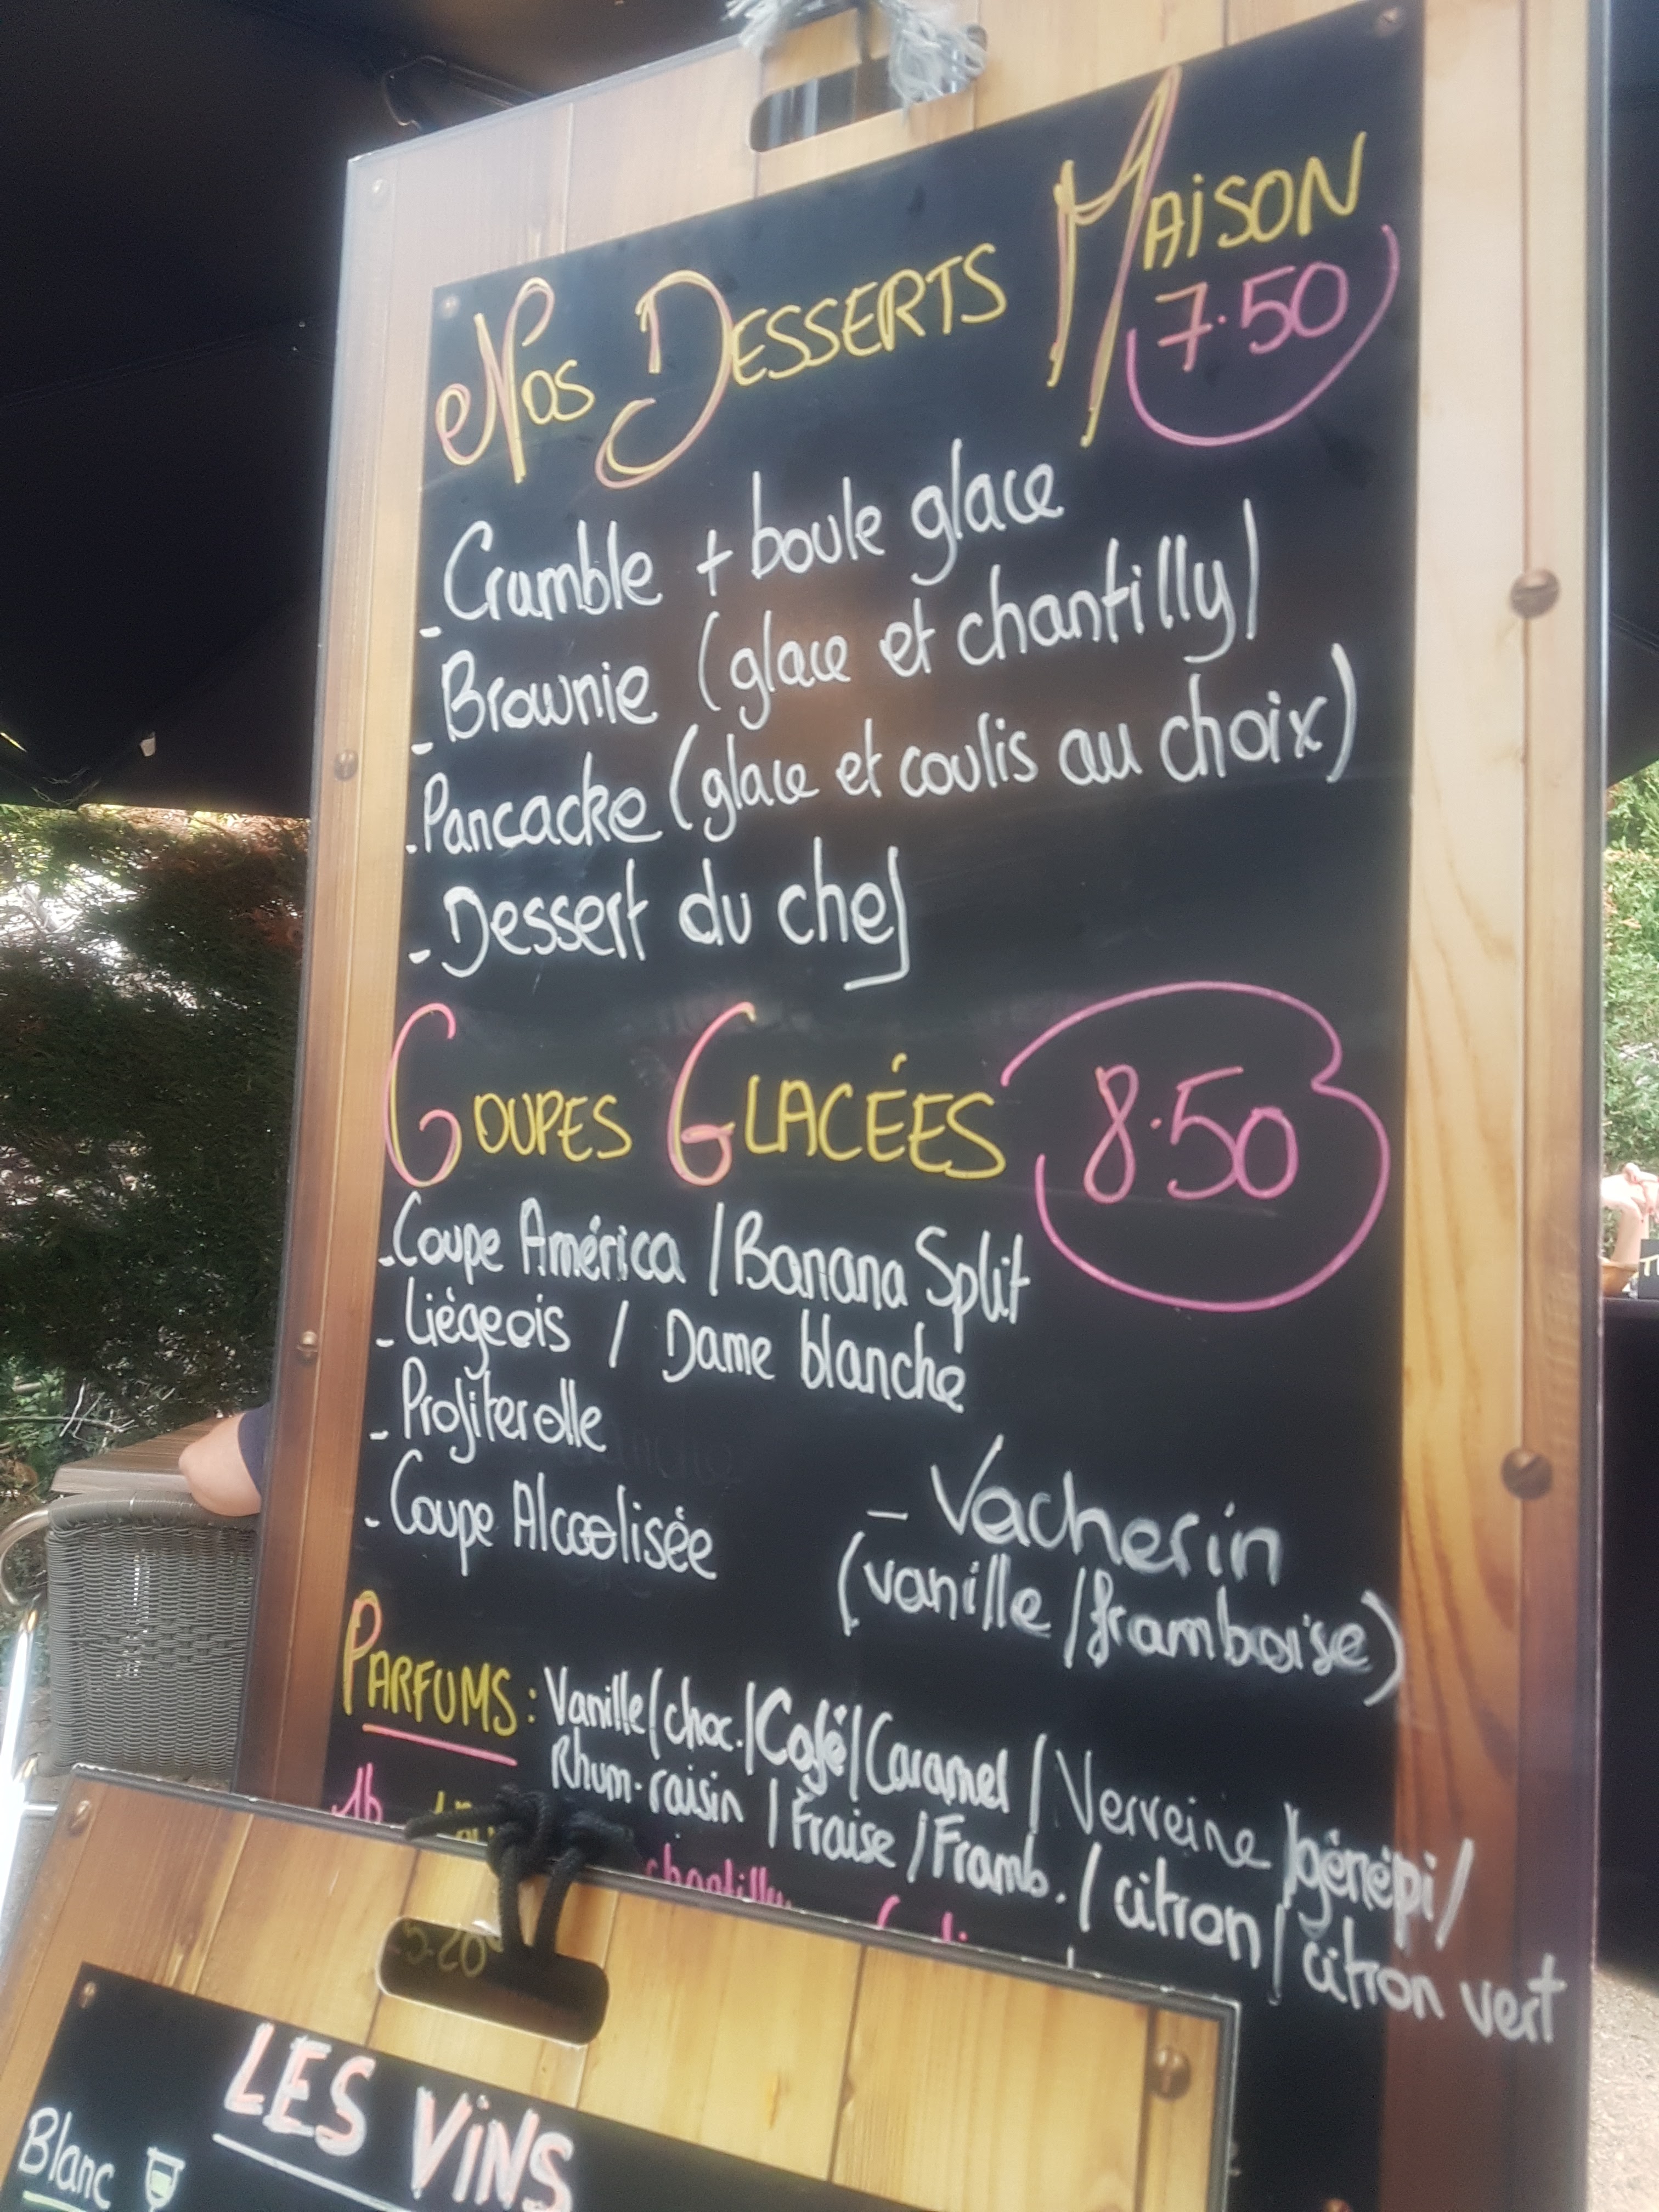 Nos DESSERTS MAiSON
7.50
- Crumble + boule glace
- Brownie (glace et chantilly)
- Pancacke (glace et coulis au choix)
- Dessert du chef
COUPES GLACÉES 8.50
- Coupe América / Banana Split
- Liégeois / Dame blanche
- Profiterolle
- Coupe Alcoolisée
- Vacherin
(vanille / framboise)
PARFUMS : Vanille / choc. / Café / Caramel / Verveine / génépi /
Rhum-raisin / Fraise / Framb. / citron / citron vert
1b
chantilly
LES ViNS
Blanc